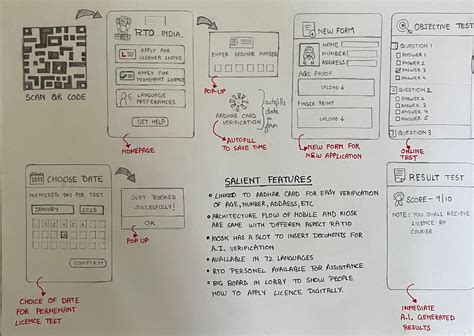 SCAN QR CODE
RTO INDIA
APPLY FOR
LEARNER LICENCE
APPLY FOR
PERMENANT LICENCE
LANGUAGE
PREFERENCES
GET HELP
HOMEPAGE
ENTER AADHAR NUMBER
POP-UP
AADHAR CARD
VERIFICATION
autofills
data in
form
AUTOFILL
TO SAVE TIME
NEW FORM
NAME
NUMBER
ADDRESS
AGE PROOF
UPLOAD
FINGER PRINT
UPLOAD
NEW FORM FOR
NEW APPLICATION
OBJECTIVE TEST
QUESTION 1
ANSWER 1
ANSWER 2
ANSWER 3
ANSWER 4
QUESTION 2
ANSWER 1
ANSWER 2
ANSWER 3
ANSWER 4
QUESTION 3
ONLINE
TEST
CHOOSE DATE
PREFERRED DAY FOR TEST
JANUARY 2025
CONFIRM
CHOICE OF DATE
FOR PERMENANT
LICENCE TEST
SLOT BOOKED
SUCCESFULLY!
OK
POP UP
SALIENT FEATURES
• LINKED TO AADHAR CARD FOR EASY VERIFICATION
OF AGE, NUMBER, ADDRESS, ETC
• ARCHITECTURE FLOW OF MOBILE AND KIOSK
ARE SAME WITH DIFFEREN ASPECT RATIO
• KIOSK HAS A SLOT TO INSERT DOCUMENTS FOR
A.I. VERIFICATION
• AVAILABLE IN 72 LANGUAGES
• RTO PERSONEL AVAILABLE FOR ASSISTANCE
• BIG BOARD IN LOBBY TO SHOW PEOPLE
HOW TO APPLY LICENCE DIGITALLY.
RESULT TEST
SCORE - 9/10
NOTE: YOU SHALL RECIEVE
LICENCE BY
COURIER
IMMEDIATE
A.I. GENERATED
RESULTS